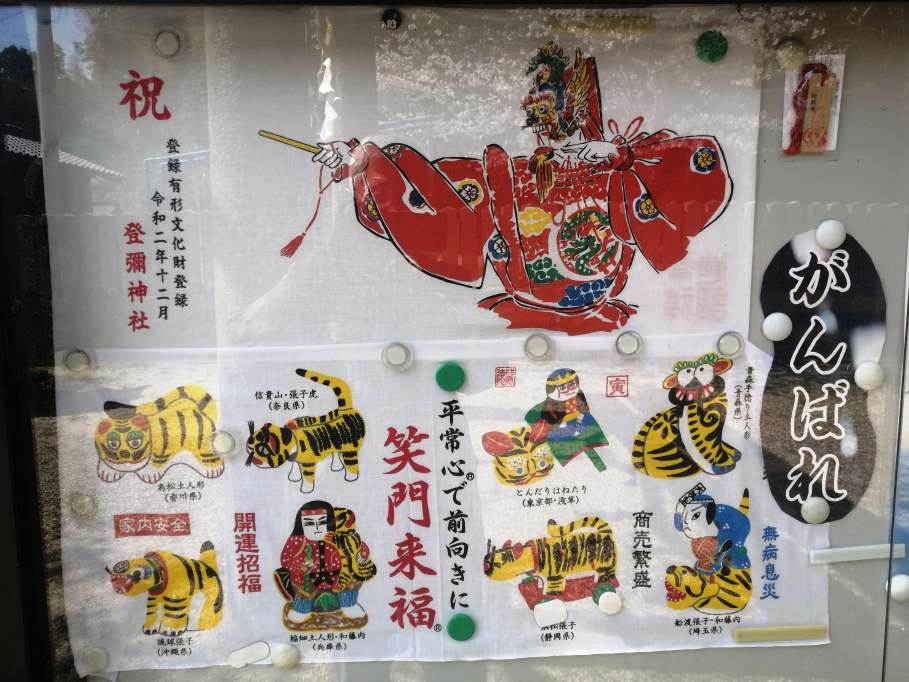 祝
登録有形文化財登録
令和二年十二月
登彌神社
がんばれ
高松土人形
(香川県)
信貴山・張子虎
(奈良県)
家内安全
開運招福
琉球張子
(沖縄県)
稲畑土人形・和藤内
(兵庫県)
笑門来福®
平常心®で前向きに
寅
とんだりはねたり
(東京都・浅草)
青森手捻り土人形
(青森県)
商売繁盛
浜松張子
(静岡県)
無病息災
船渡張子・和藤内
(埼玉県)